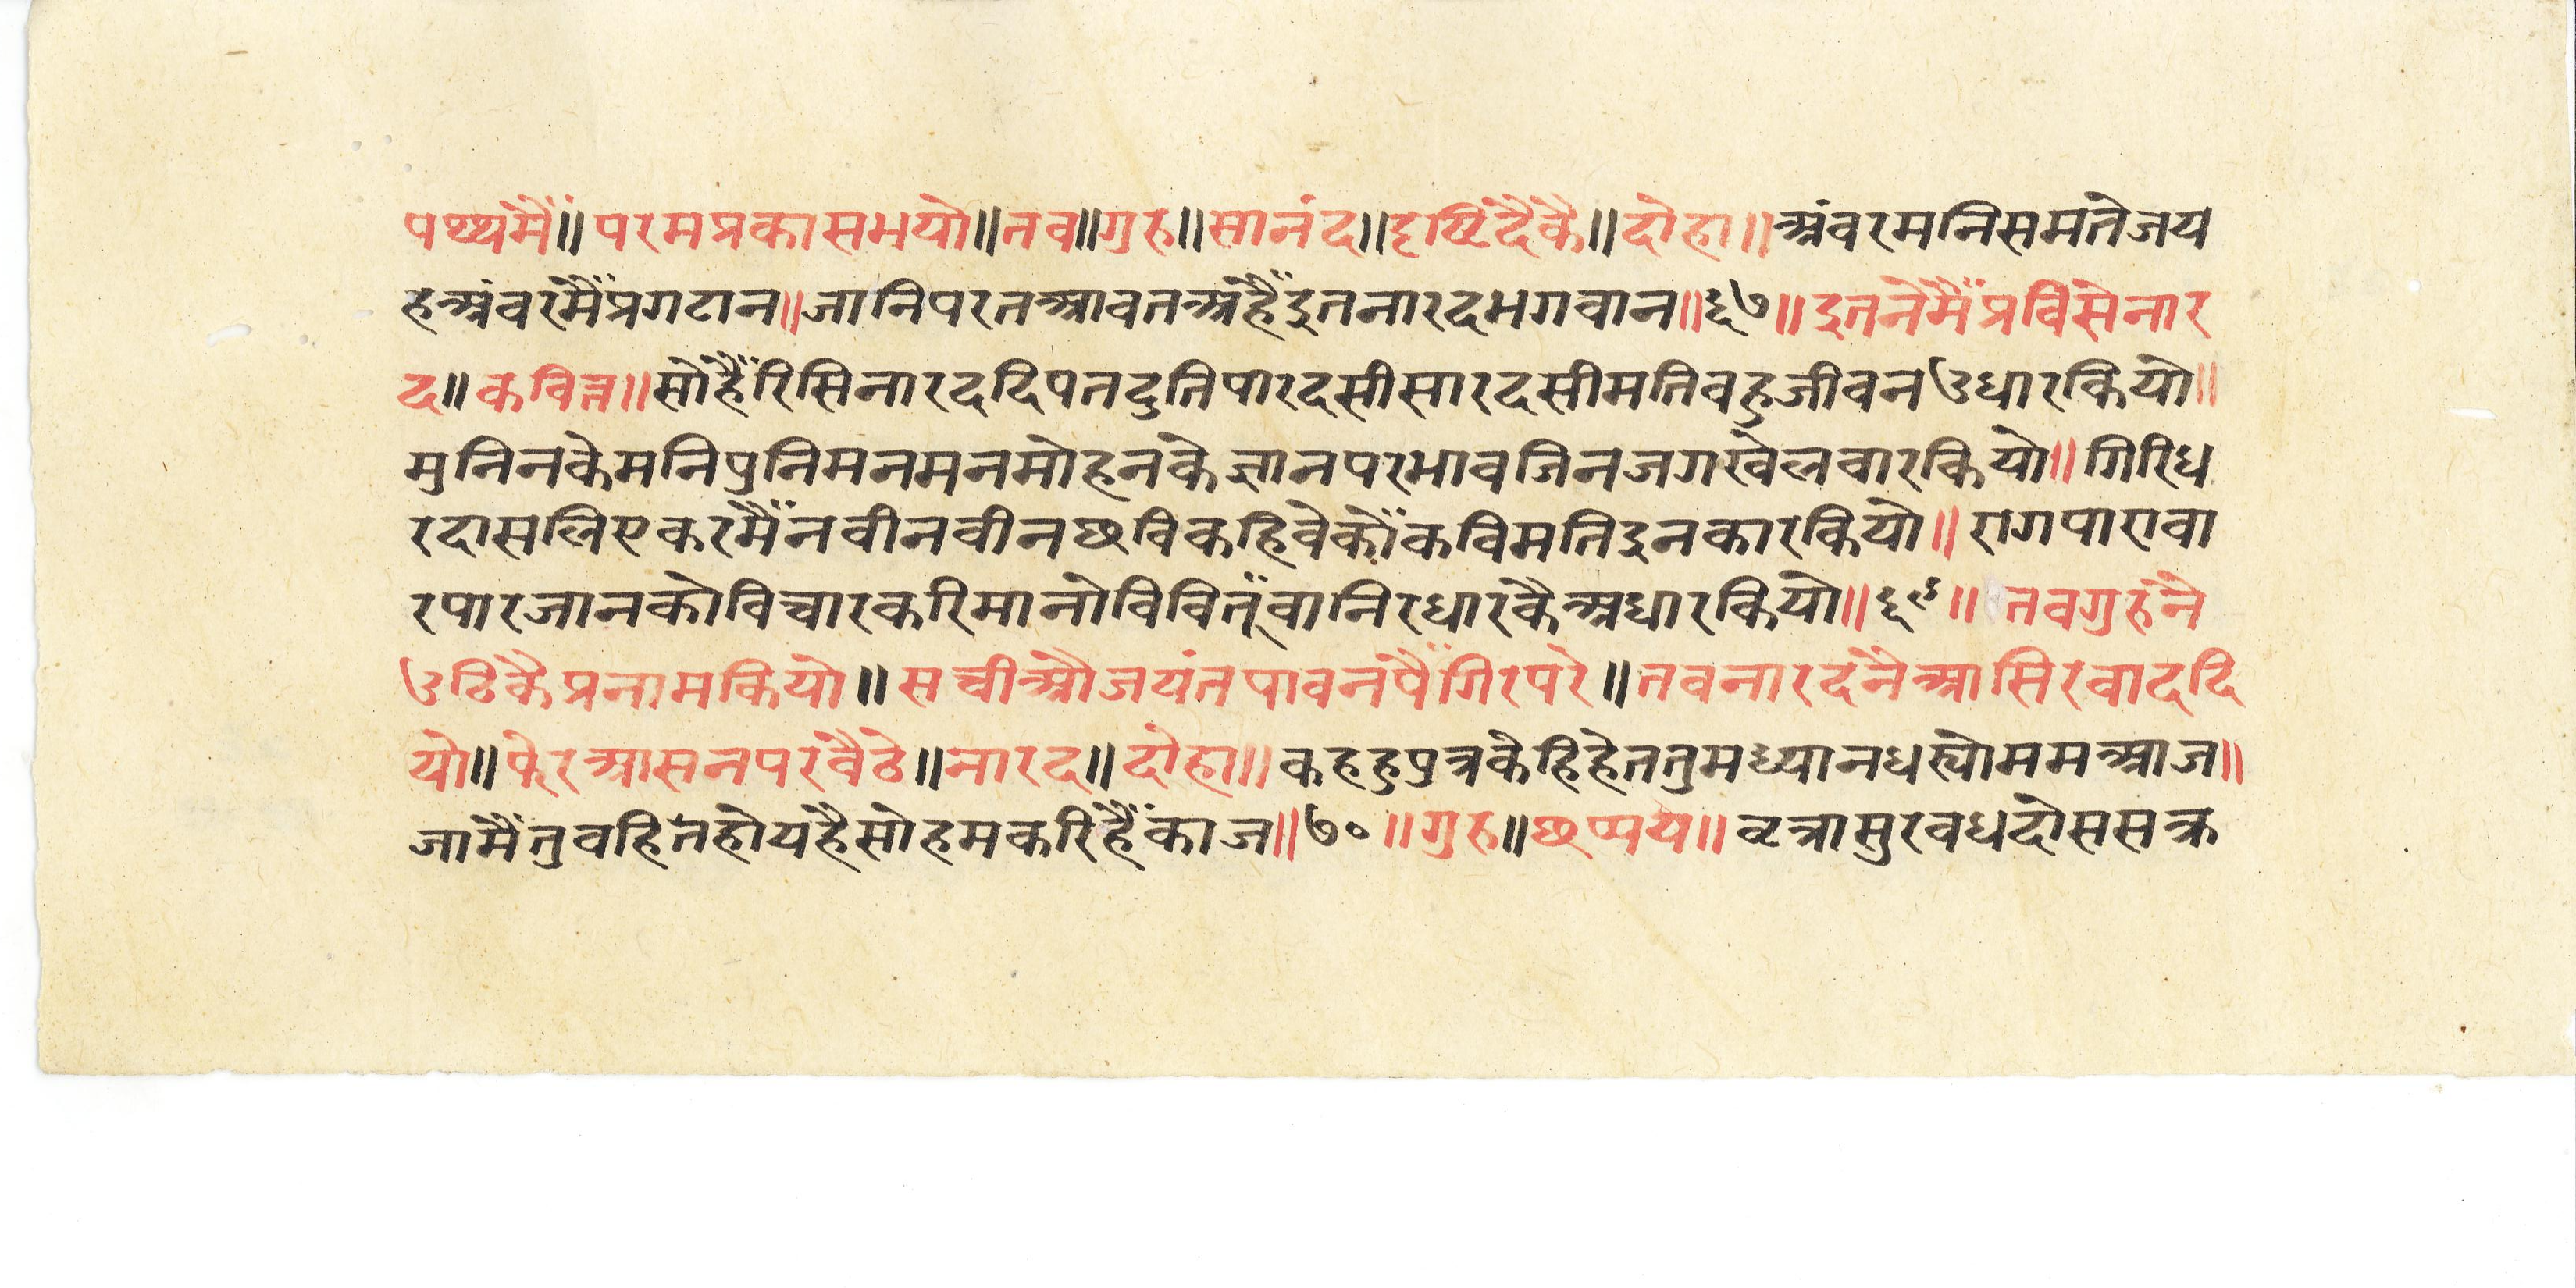 पथ्थंमैं॥परमप्रकासभयो॥तव॥गुरु॥सानंद॥दृष्टिदैकै॥दोहा॥अंवरमनिसमतेजय
हअंवरमैंप्रगटान॥जानिपरतआवतअहैंइतनारदभगवान॥६७॥इतनेमैंप्रविसेनार
द॥कवित्त॥सोहैंरिसिनारददिपतदुतिपारदसीसारदसीमतिवहुजीवनउधारकियो॥
मुनिनकेमनिपुनिमनमनमोहनकेज्ञानपरभावजिनजगखेलवारकियो॥गिरिध
रदासलिएकरमैंनवीनवीनछविकहिवेकोंकविमतिइनकारकियो॥रागपारावा
रपारजानकोविचारकरिमानोविवितूंवानिरधारकैअधारकियो॥६९॥तवगुरुने
उठिकैप्रनामकियो॥सचीऔजयंतपावनपैंगिरपरे॥तवनारदनेआसिरवाददि
यो॥फेरआसनपरवैठे॥नारद॥दोहा॥कहहुपुत्रकेहिहेततुमध्यानधस्योममआज॥
जामैंतुवहितहोयहैसोहमकरिहैंकाज॥७०॥गुरु॥छप्पय॥वृत्रासुरवधदोससक्र